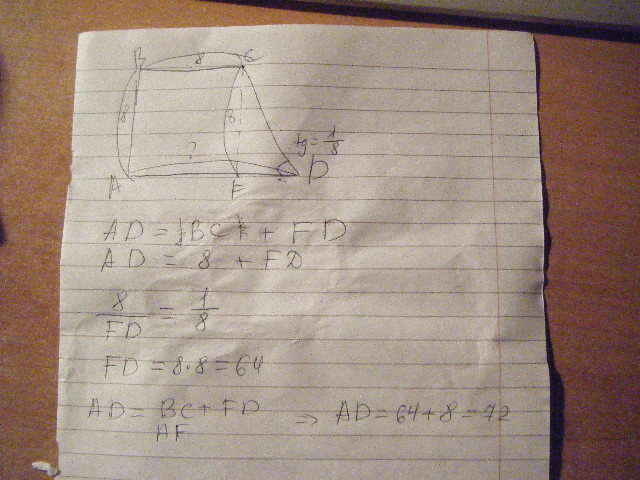 B 8 C
8 8
tg = 1/8
?
A F D
AD = BC + FD
AD = 8 + FD
8/FD = 1/8
FD = 8·8 = 64
AD = BC + FD => AD = 64 + 8 = 72
AF